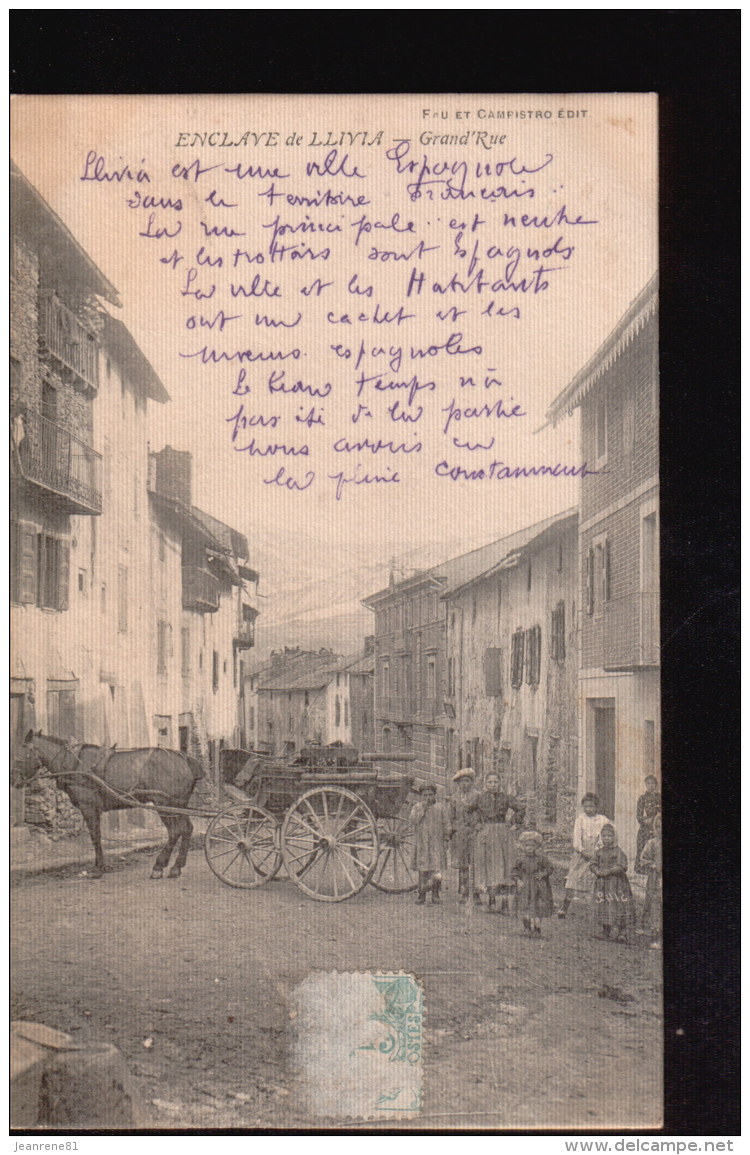 FAU ET CAMPISTRO ÉDIT
ENCLAVE de LLIVIA — Grand'Rue
Llivia est une ville Espagnole
dans le territoire Français..
La rue principale.. est neutre
et les trottoirs sont Espagnols
La ville et les Habitants
ont un cachet et les
mœurs espagnoles
Le beau temps n'a
pas été de la partie
nous avons eu
la pluie constamment
POSTES
jeanrene81
www.delcampe.net